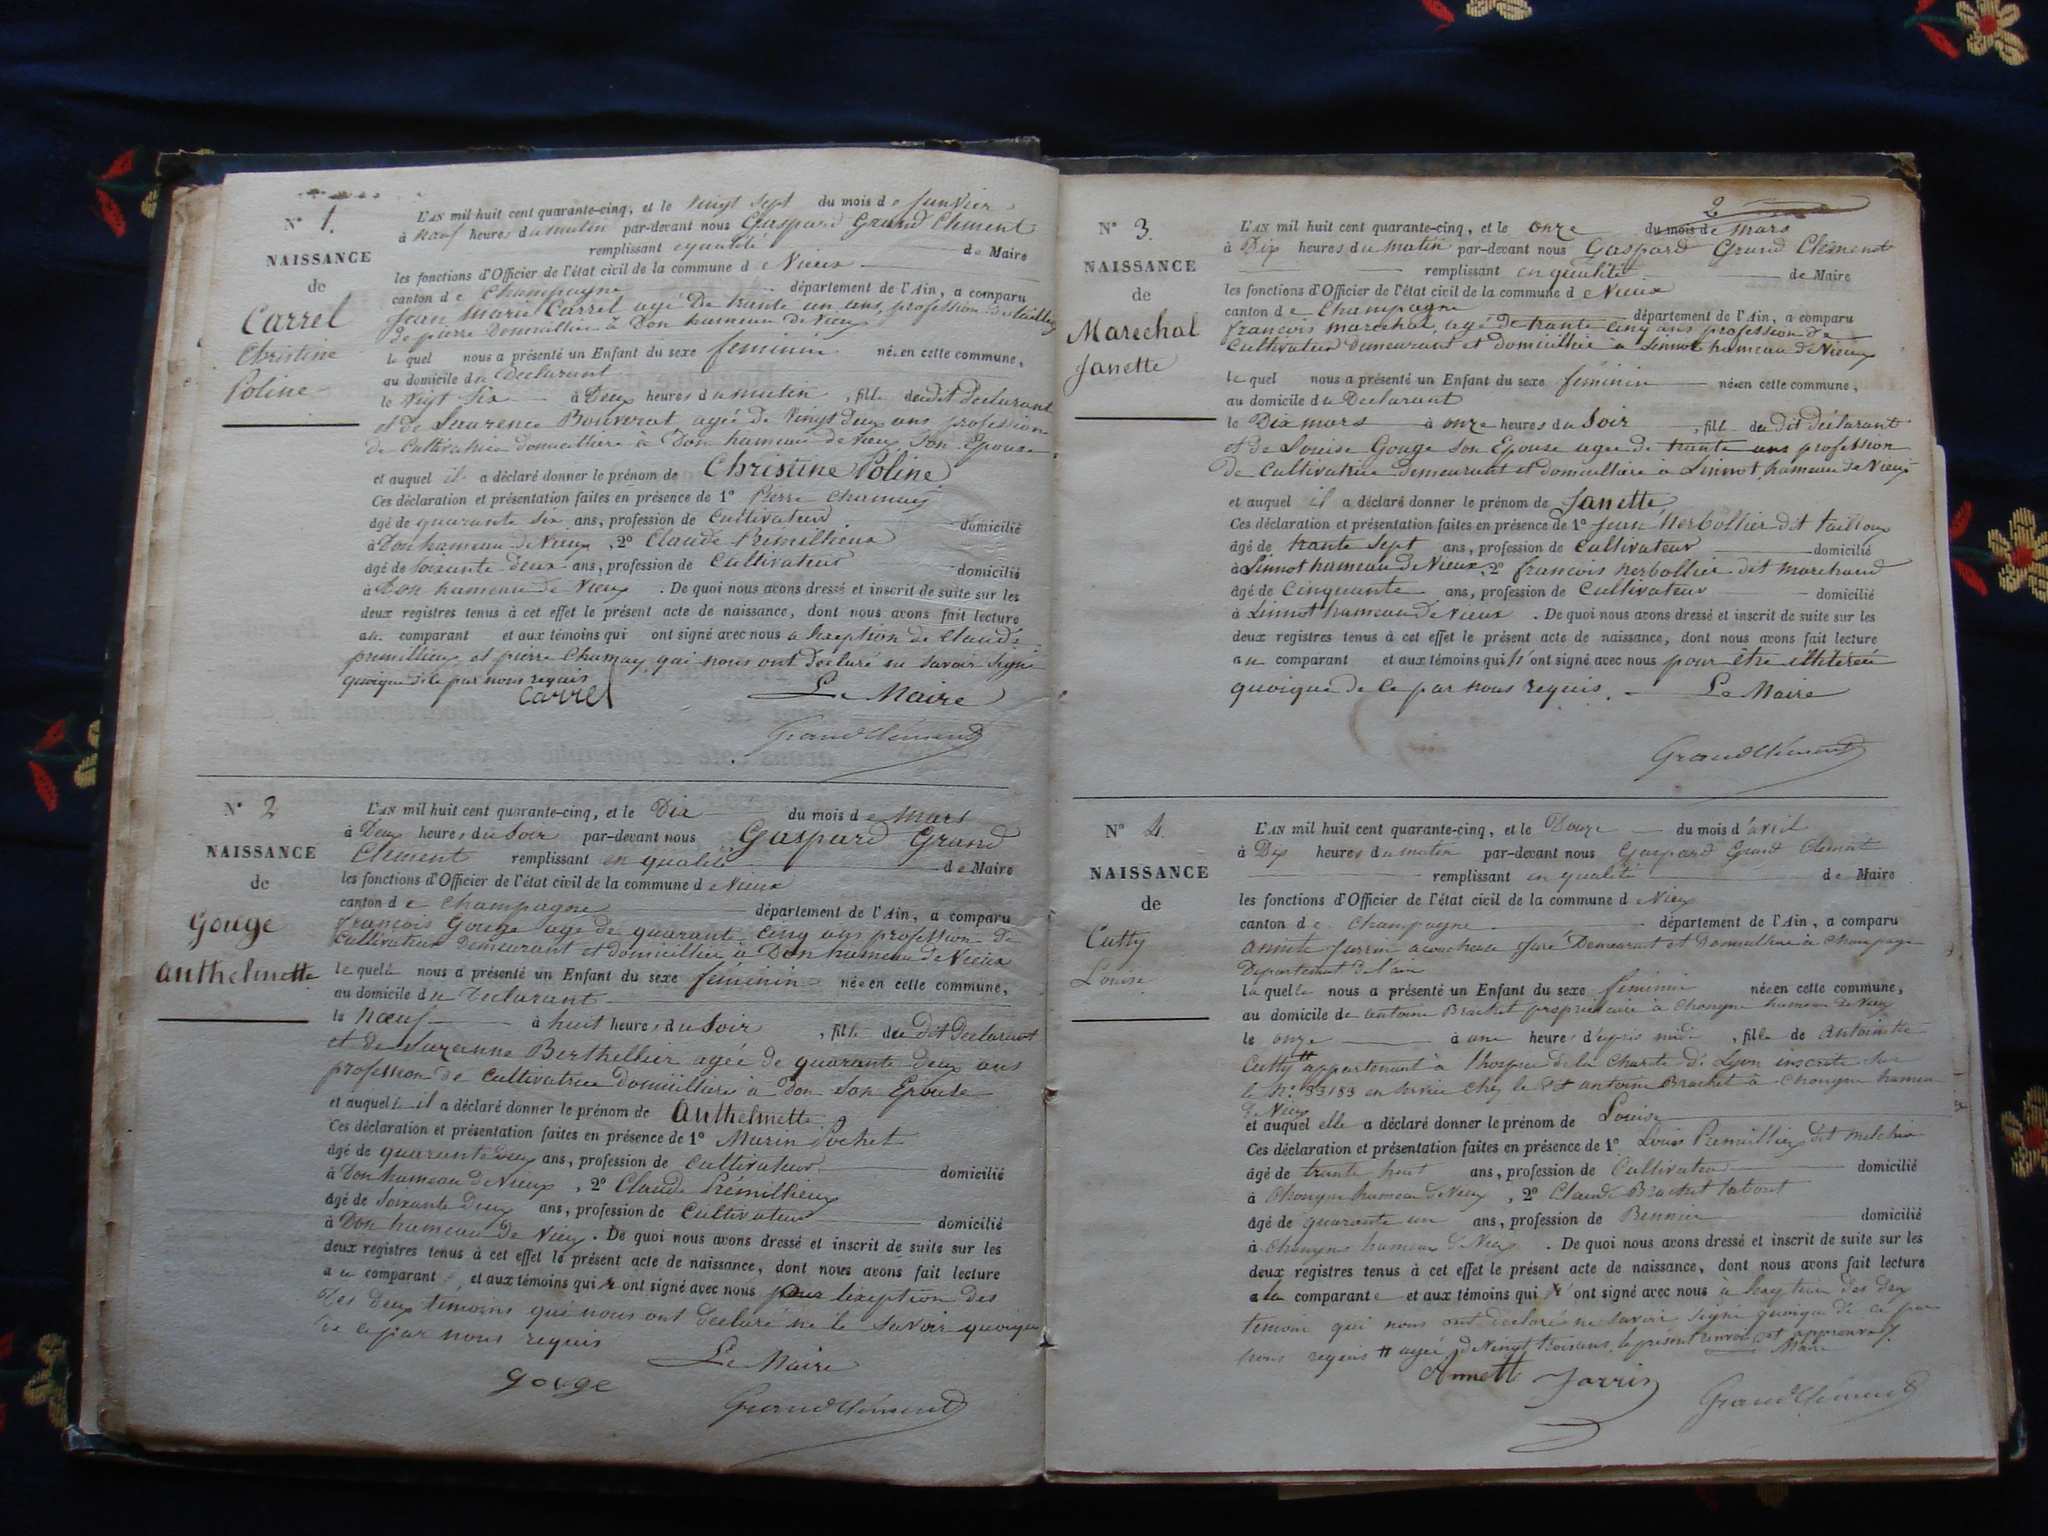 N° 1.
NAISSANCE
de
Carrel
Christine
Poline
L'AN mil huit cent quarante-cinq, et le vingt sept du mois de Janvier
à neuf heures du matin par-devant nous Gaspard Grand Clément
remplissant equalité de Maire
les fonctions d'Officier de l'état civil de la commune de Vieux
canton de Champagne département de l'Ain, a comparu
Jean Marie Carrel agé De trante un ans, profession de tailleur
de pierre Domicillier à Don hameau de Vieux
le quel nous a présenté un Enfant du sexe féminin née en cette commune,
au domicile du Déclarant
le vigt six à Deux heures du matin, fille dudit déclarant
et de Laurence Bouvrat agée de vingt deux ans profession
de Cultivatrice domicilliere à Don hameau de vieux son Epouse
et auquel il a déclaré donner le prénom de Christine Poline
Ces déclaration et présentation faites en présence de 1° Pierre Chamay
âgé de quarante six ans, profession de Cultivateur domicilié
à Don hameau de Vieux, 2° Claude Premillieux
âgé de soixante deux ans, profession de Cultivateur domicilié
à Don hameau de Vieux. De quoi nous avons dressé et inscrit de suite sur les
deux registres tenus à cet effet le présent acte de naissance, dont nous avons fait lecture
au comparant et aux témoins qui ont signé avec nous a lexeption de Claude
premillieux et pierre Chamay qui nous ont Déclaré ne savoir signé
quoique de ce par nous requis
Carrel Le Maire
Grand Clément
N° 2
NAISSANCE
de
Gouge
Anthelmette
L'AN mil huit cent quarante-cinq, et le Dix du mois de Mars
à Deux heures du soir par-devant nous Gaspard Grand
Clément remplissant en qualité de Maire
les fonctions d'Officier de l'état civil de la commune de Vieux
canton de Champagne département de l'Ain, a comparu
François Gouge agé de quarante cinq ans profession de
cultivateur demeurant et domicillier à Don hameau de Vieux
le quel nous a présenté un Enfant du sexe féminin née en cette commune,
au domicile du Déclarant
le nœuf à huit heures du soir, fille du dit Déclarant
et de Suzanne Berthellier agée de quarante deux ans
profession de cultivatrice domicilliere à Don son Epouse
et auquel il a déclaré donner le prénom de Anthelmette
Ces déclaration et présentation faites en présence de 1° Marin Pochet
âgé de quarante deux ans, profession de Cultivateur domicilié
à Don hameau de Vieux, 2° Claude Prémillieux
âgé de soixante deux ans, profession de Cultivateur domicilié
à Don hameau de Vieux. De quoi nous avons dressé et inscrit de suite sur les
deux registres tenus à cet effet le présent acte de naissance, dont nous avons fait lecture
au comparant et aux témoins qui ont signé avec nous pour lexeption des
des deux témoins qui nous ont déclaré ne le savoir quoique
de ce par nous requis
Le Maire
gouge
Grand Clément
2
N° 3.
NAISSANCE
de
Marechal
Janette
L'AN mil huit cent quarante-cinq, et le onze du mois de mars
à Dix heures du matin par-devant nous Gaspard Grand Clément
remplissant en qualité de Maire
les fonctions d'Officier de l'état civil de la commune de Vieux
canton de Champagne département de l'Ain, a comparu
François marechal, agé de trante cinq ans profession de
Cultivateur Demeurant et domicillié à Linnot hameau de Vieux
le quel nous a présenté un Enfant du sexe féminin née en cette commune,
au domicile du Declarant
le Dix mars à onze heures du soir, fille du dit déclarant
et de Louise Gouge son Epouse agee de trante ans profession
de Cultivatrice demeurant et domicilliere à Linnot hameau de Vieux
et auquel il a déclaré donner le prénom de Janette
Ces déclaration et présentation faites en présence de 1° Jean Herbollier dit tailloux
âgé de trante sept ans, profession de Cultivateur domicilié
à Linnot hameau de Vieux, 2° francois herbollier dit marchand
âgé de Cinquante ans, profession de Cultivateur domicilié
à Linnot hameau de Vieux. De quoi nous avons dressé et inscrit de suite sur les
deux registres tenus à cet effet le présent acte de naissance, dont nous avons fait lecture
au comparant et aux témoins qui n'ont signé avec nous pour être illitéré
quoique de ce par nous requis. Le Maire
Grand Clément
N° 4.
NAISSANCE
de
Cutty
Louise
L'AN mil huit cent quarante-cinq, et le Douze du mois d'avril
à Dix heures du matin par-devant nous Gaspard Grand Clément
remplissant en qualité de Maire
les fonctions d'Officier de l'état civil de la commune de Vieux
canton de Champagne département de l'Ain, a comparu
Annette Jarrin acoucheuse Juré Demeurant et domicilliere à Champagne
Departement de l'ain
la quelle nous a présenté un Enfant du sexe féminin née en cette commune,
au domicile de antoine Brachet propriétaire à Chongne hameau de Vieux
le onze à une heure d'après midi, fille de Antoinette
Cutty # appartenant à l'hospice de la Charité de Lyon inscrite sur
le N° 33183 en service chez le dit antoine Brachet à Chongne hameau
de Vieux
et auquel elle a déclaré donner le prénom de Louise
Ces déclaration et présentation faites en présence de 1° Louis Premillieux dit melchior
âgé de trante huit ans, profession de Cultivateur domicilié
à Chongne hameau de Vieux, 2° Claude Brachet
âgé de quarante un ans, profession de domicilié
à Chongne hameau de Vieux. De quoi nous avons dressé et inscrit de suite sur les
deux registres tenus à cet effet le présent acte de naissance, dont nous avons fait lecture
a la comparante et aux témoins qui ont signé avec nous à lexeption des deux
temoins qui nous ont déclaré ne savoir signé quoique de ce par
nous requis # agée de vingt trois ans le présent renvoi est approuvé.
Maire
Annette Jarrin
Grand Clément